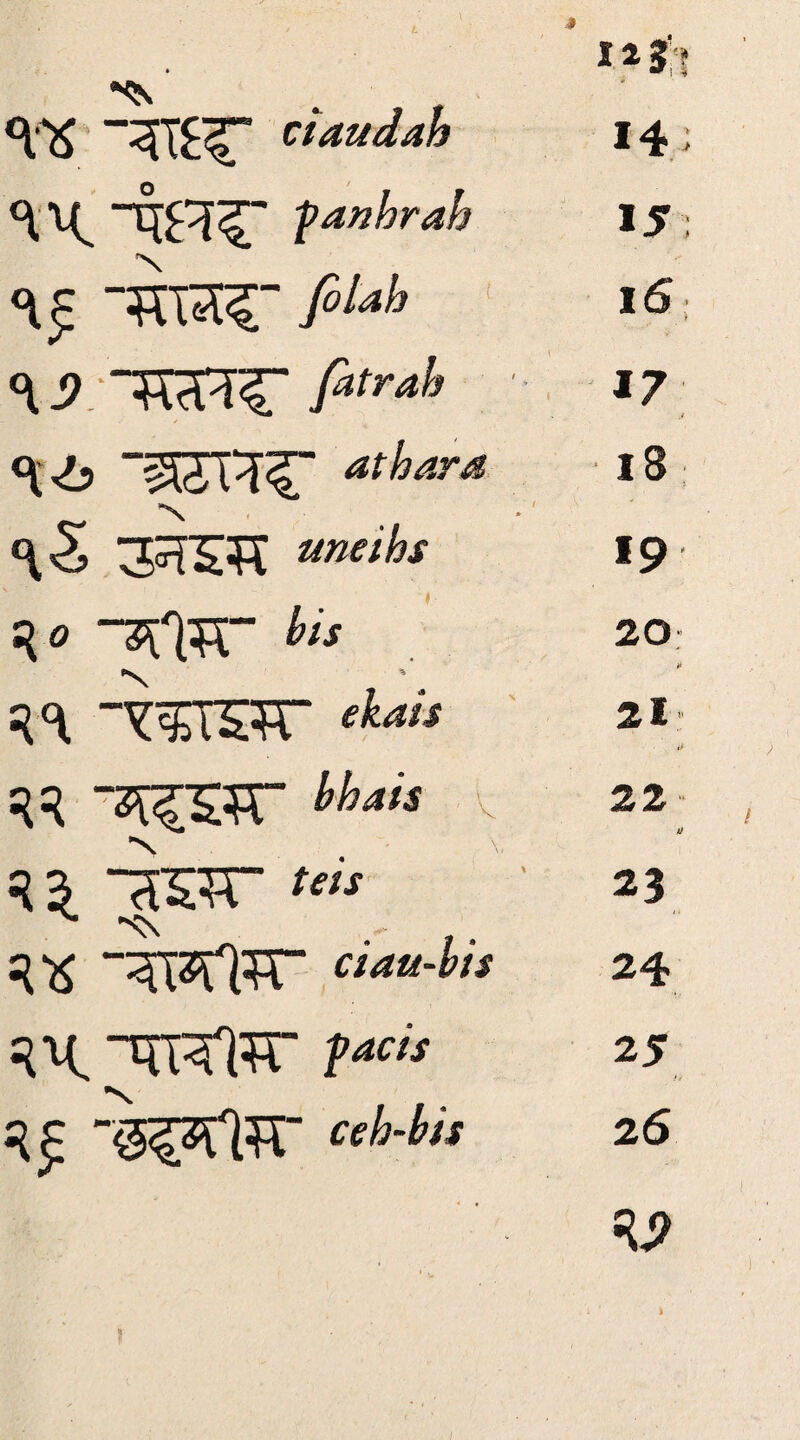 123
१४ चौदह ciaudah 14
१५ पंदरह panhrah 15
१६ सोलह ſolah 16
१७ सतरह ſatrah 17
१८ अठारह athara 18
१९ उनेइस uneihs 19
२० बीस bis 20
२१ एकाइस ekais 21
२२ बहइस bhais 22
२३ तेइस teis 23
२४ चौबीस ciau-bis 24
२५ पाचीस pacis 25
२६ छेहबीस ceh-bis 26
२७